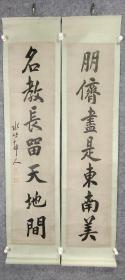 朋儕盡是東南美
名教長留天地間